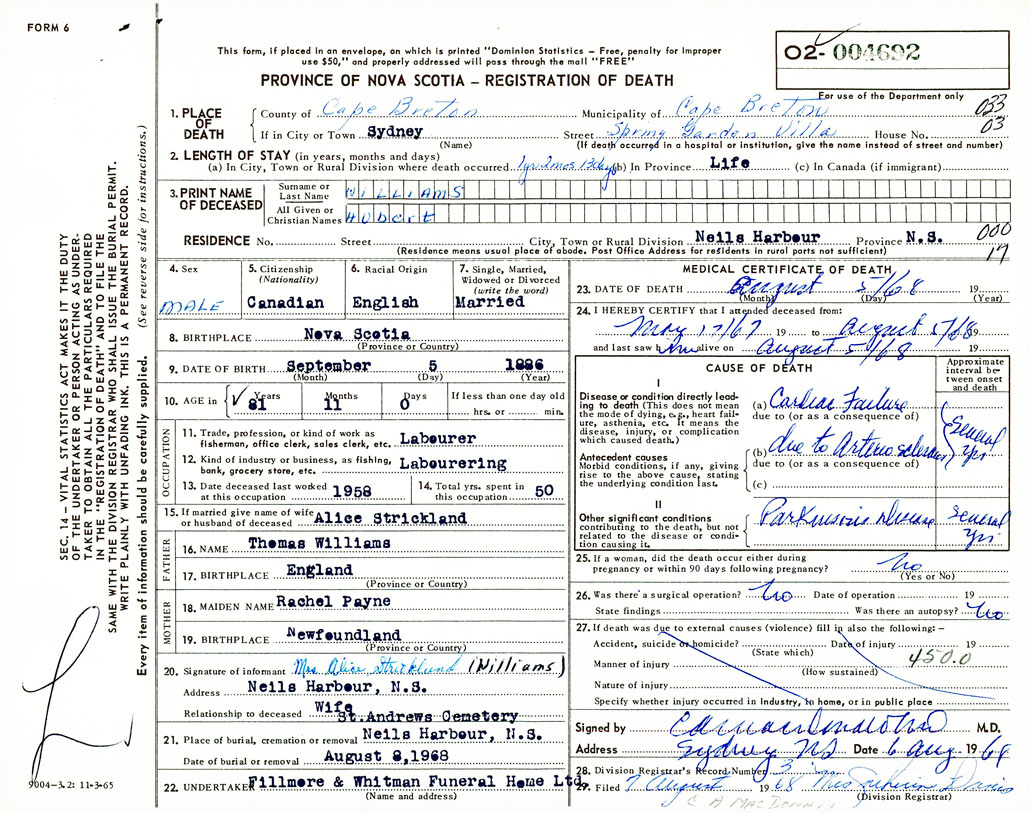 FORM 6
This form, if placed in an envelope, on which is printed "Dominion Statistics – Free, penalty for improper
use $50," and properly addressed will pass through the mail "FREE"
02- 004692
PROVINCE OF NOVA SCOTIA – REGISTRATION OF DEATH
For use of the Department only
1. PLACE OF DEATH
County of Cape Breton Municipality of Cape Breton 033
If in City or Town Sydney Street Spring Garden Villa House No. 03
(Name) (If death occurred in a hospital or institution, give the name instead of street and number)
2. LENGTH OF STAY (in years, months and days)
(a) In City, Town or Rural Division where death occurred 1yr 2mos 13dys (b) In Province Life (c) In Canada (if immigrant)
3. PRINT NAME OF DECEASED
Surname or Last Name WILLIAMS
All Given or Christian Names Hubert
RESIDENCE No. Street City, Town or Rural Division Neils Harbour Province N.S. 000
(Residence means usual place of abode. Post Office Address for residents in rural parts not sufficient) 17
4. Sex
MALE
5. Citizenship
(Nationality)
Canadian
6. Racial Origin
English
7. Single, Married,
Widowed or Divorced
(write the word)
Married
8. BIRTHPLACE Nova Scotia
(Province or Country)
9. DATE OF BIRTH September 5 1886
(Month) (Day) (Year)
10. AGE in Years Months Days If less than one day old
81 11 0 hrs. or min.
OCCUPATION
11. Trade, profession, or kind of work as
fisherman, office clerk, sales clerk, etc. Labourer
12. Kind of industry or business, as fishing,
bank, grocery store, etc. Labourering
13. Date deceased last worked
at this occupation 1958
14. Total yrs. spent in
this occupation 50
15. If married give name of wife
or husband of deceased Alice Strickland
FATHER
16. NAME Thomas Williams
17. BIRTHPLACE England
(Province or Country)
MOTHER
18. MAIDEN NAME Rachel Payne
19. BIRTHPLACE Newfoundland
(Province or Country)
20. Signature of informant Mrs Alice Strickland (Williams)
Address Neils Harbour, N.S.
Relationship to deceased Wife
St.Andrews Cemetery
21. Place of burial, cremation or removal Neils Harbour, N.S.
Date of burial or removal August 8,1968
22. UNDERTAKER Fillmore & Whitman Funeral Home Ltd.
(Name and address)
MEDICAL CERTIFICATE OF DEATH
23. DATE OF DEATH August 5/68 19
(Month) (Day) (Year)
24. I HEREBY CERTIFY that I attended deceased from:
May 17/67 19 to August 5/68 19
and last saw him alive on August 5/68 19
CAUSE OF DEATH
Approximate
interval be-
tween onset
and death
I
Disease or condition directly lead-
ing to death (This does not mean
the mode of dying, e.g., heart fail-
ure, asthenia, etc. It means the
disease, injury, or complication
which caused death.)
(a) Cardiac Failure
due to (or as a consequence of)
Antecedent causes
Morbid conditions, if any, giving
rise to the above cause, stating
the underlying condition last.
(b) due to Arteriosclerosis
due to (or as a consequence of)
(c)
Several
yrs
II
Other significant conditions
contributing to the death, but not
related to the disease or condi-
tion causing it.
Parkinsons disease
Several
yrs
25. If a woman, did the death occur either during
pregnancy or within 90 days following pregnancy? No
(Yes or No)
26. Was there a surgical operation? No Date of operation 19
State findings Was there an autopsy? No
27. If death was due to external causes (violence) fill in also the following: –
Accident, suicide or homicide? Date of injury 19
(State which)
450.0
Manner of injury
(How sustained)
Nature of injury
Specify whether injury occurred in Industry, in home, or in public place
Signed by M.D.
Address Sydney NS Date 6 Aug 1968
28. Division Registrar's Record Number 3
29. Filed 7 August 1968 Mrs Davis
(Division Registrar)
C A MACDONALD
SEC. 14 – VITAL STATISTICS ACT MAKES IT THE DUTY
OF THE UNDERTAKER OR PERSON ACTING AS UNDER-
TAKER TO OBTAIN ALL THE PARTICULARS REQUIRED
IN THE "REGISTRATION OF DEATH" AND TO FILE THE
SAME WITH THE DIVISION REGISTRAR WHO SHALL ISSUE THE BURIAL PERMIT.
WRITE PLAINLY WITH UNFADING INK. THIS IS A PERMANENT RECORD.
Every item of information should be carefully supplied. (See reverse side for instructions.)
9004–3.2: 11-3-65